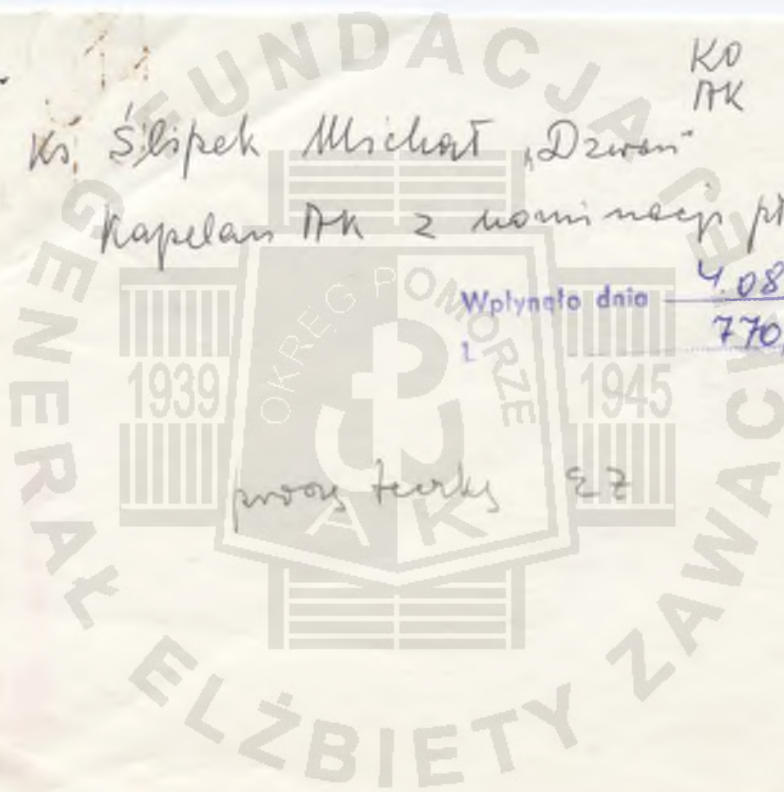 KO
AK
Ks. Ślipek Michał „Dzwon"
Kapelan AK z nominacji
Wpłynęło dnia 4.08
770
EZ
FUNDACJA
GENERAŁ ELŻBIETY ZAWACKIEJ
OKRĘG POMORZE
1939
1945
AK